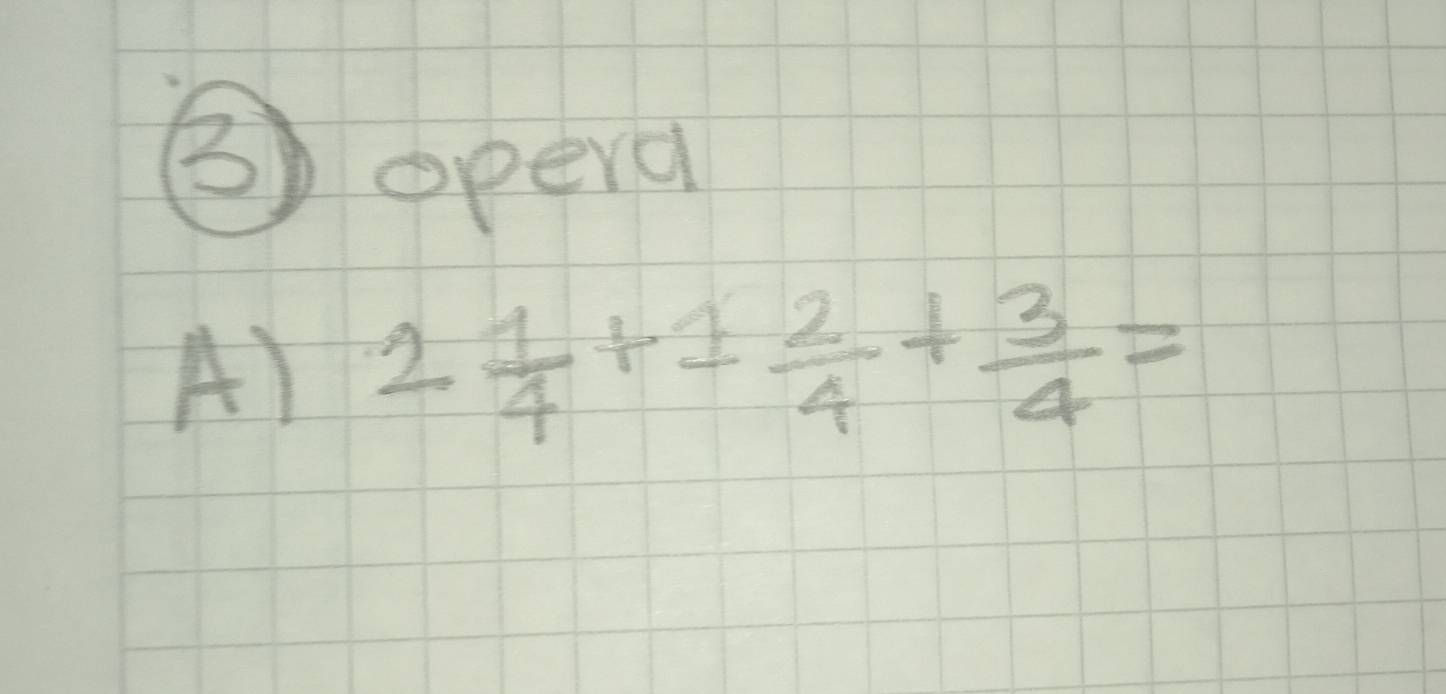 ③ opera
A) 2 1/4 + 1 2/4 + 3/4 =